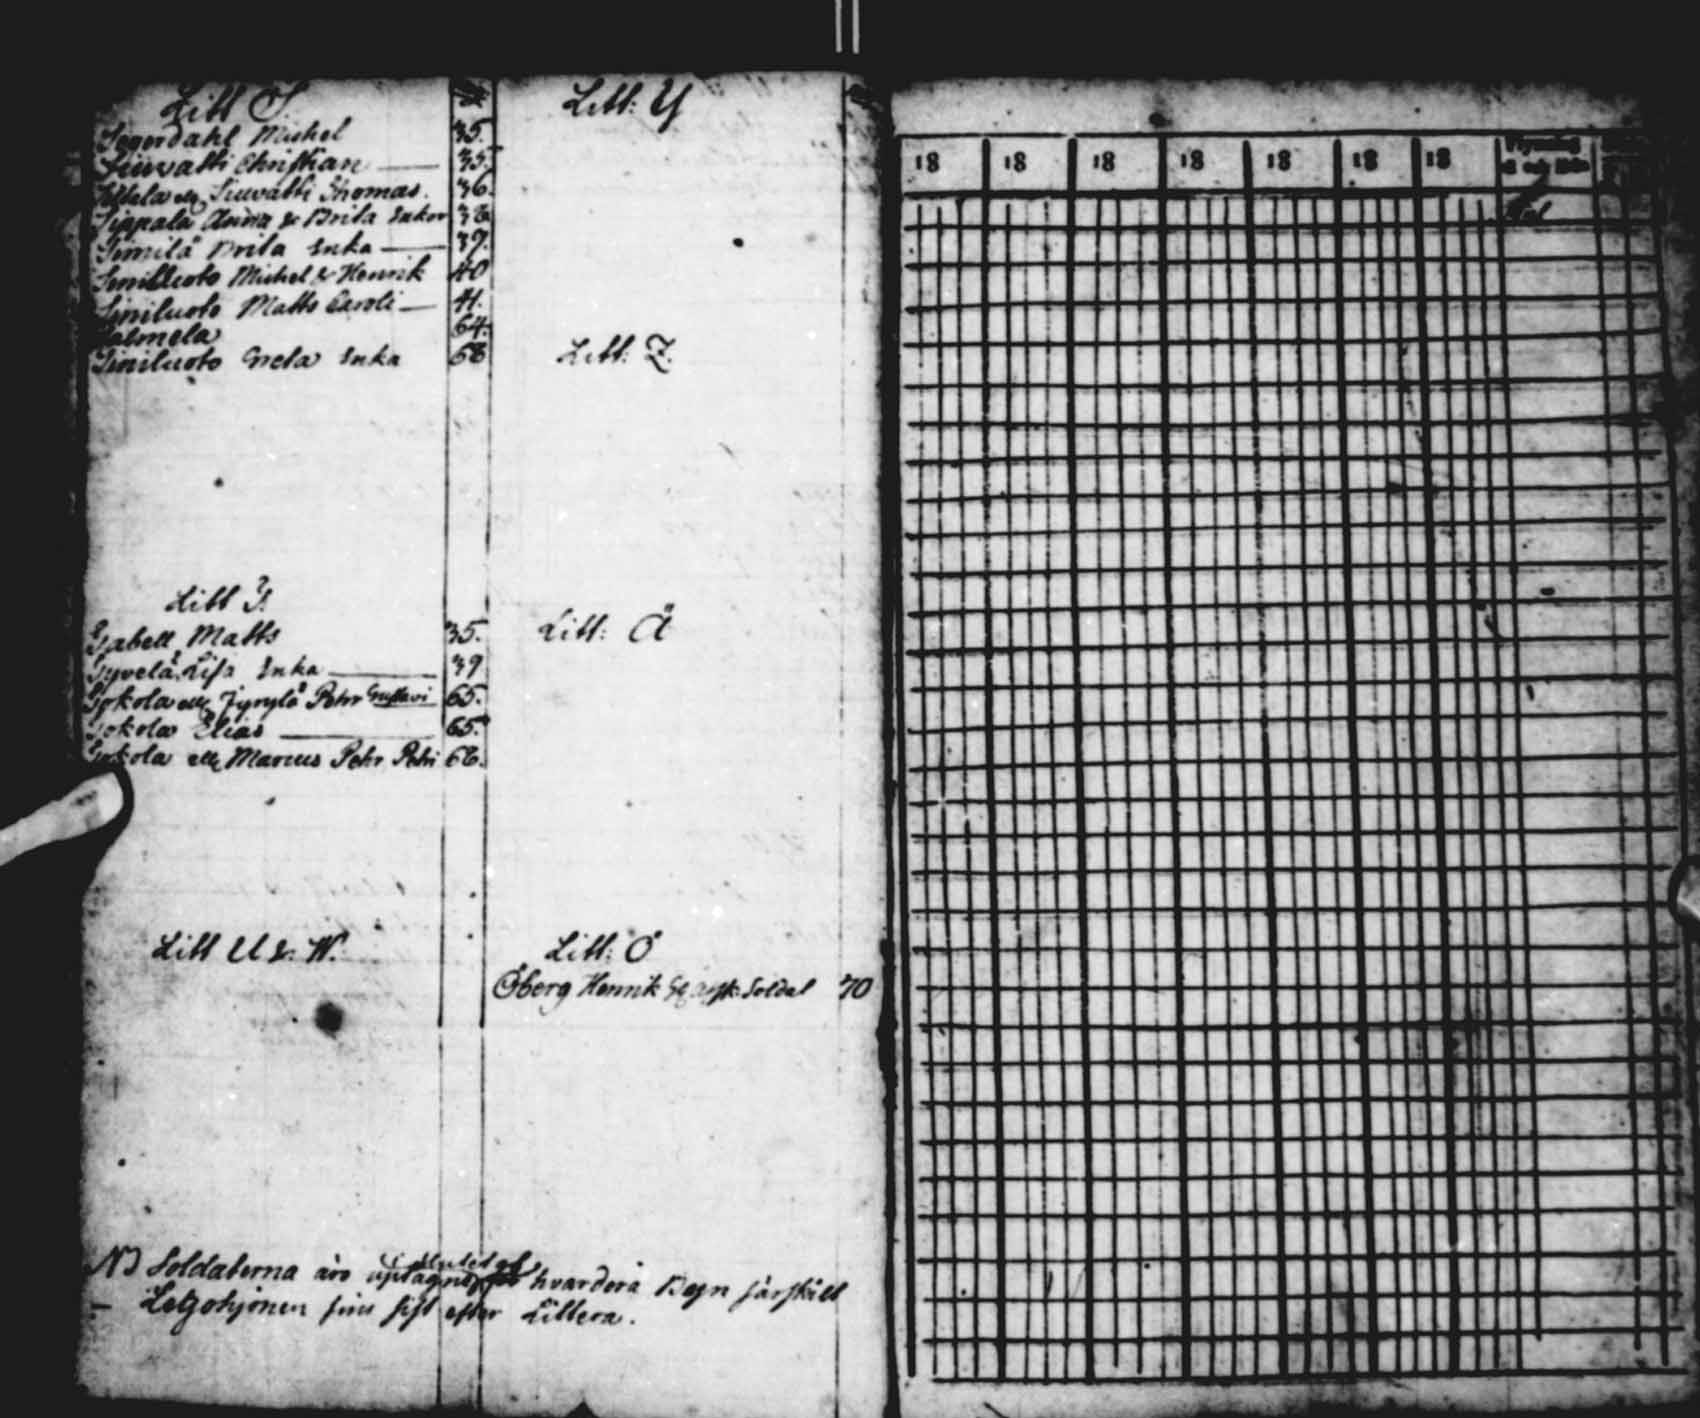 Litt S.
Segerdahl Michel 35.
Siuvatti Christian 35.
Siuvatti Thomas. 36.
Sippala Anna & Brita Enkor 38
Similä Brita Enka 39.
Siniluoto Michel & Henrik 40
Siniluoto Matts Caroli 41.
Salmela 64.
Siniluoto Greta Enka 68
Litt T.
Tabell Matts 35.
Tyvelä Lisa Enka 39
Tokola Jyrylä Petter Gustavi 65.
Tokola Elias 65.
Tokola Marcus Pehr Petri 66.
Litt U & W.
Litt: Y
Litt: Z.
Litt: Ä
Litt: Ö
Öberg Henrik Soldat 70
NB Soldaterna äro uptagne hvardera Byn särskilt
Legohjonen sist efter Littera.
18 18 18 18 18 18 18